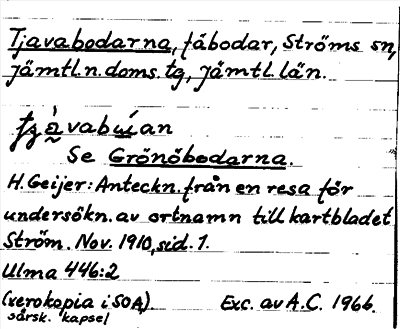 Tjavabodarna, fäbodar, Ströms sn,
Jämtl.n.doms.tg, Jämtl.län.
Se Grönöbodarna.
H.Geijer: Anteckn. från en resa för
undersökn. av ortnamn till kartbladet
Ström. Nov. 1910, sid. 1.
Ulma 446:2
(xerokopia i SOA), Exc. av A.C. 1966.
särsk. kapsel